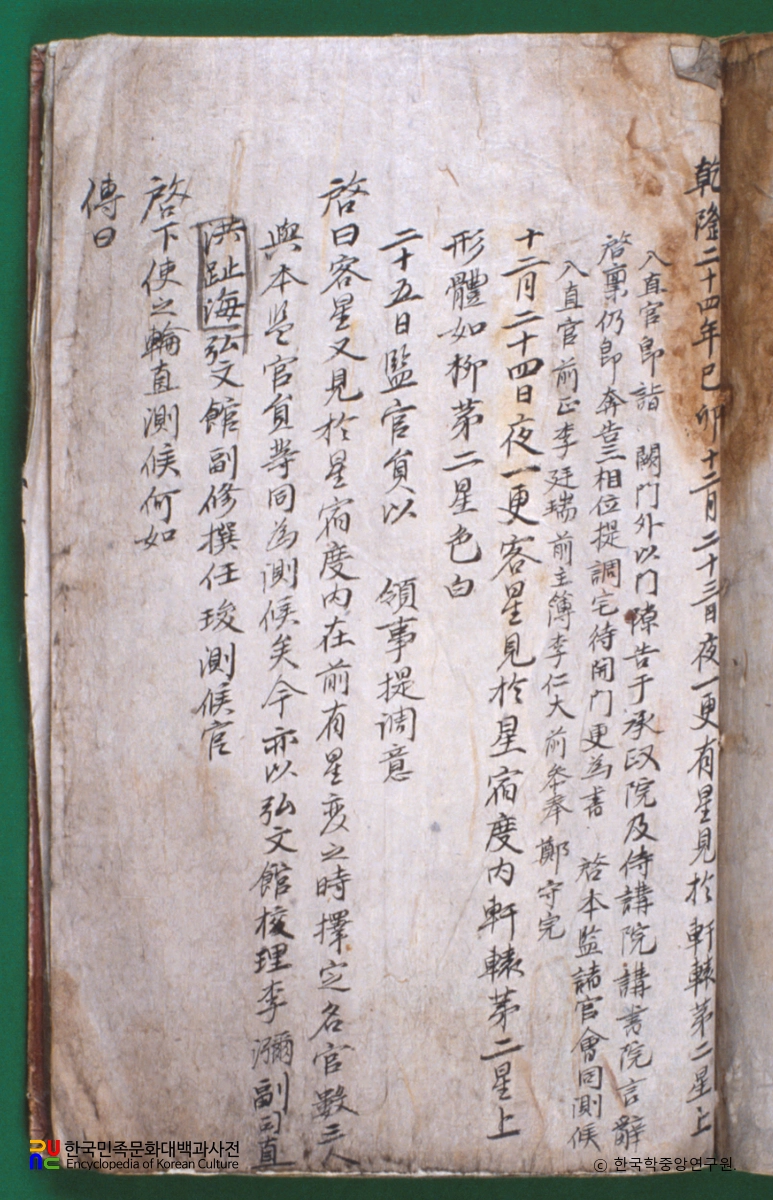 乾隆二十四年己卯十二月二十三日夜一更有星見於軒轅第二星上
入直官卽詣 闕門外以門隙告于承政院及侍講院講書院言辭
啓稟仍卽奔告三相位提調宅待開門更爲書 啓本監諸官會同測候
入直官前正李廷瑞前主簿李仁大前參奉鄭守完
十二月二十四日夜一更客星見於星宿度內軒轅第二星上
形體如柳第二星色白
二十五日監官員以 領事提調意
啓曰客星又見於星宿度內在前有星変之時擇定名官數三人
與本监官員等同為測候矣今亦以弘文館校理李瀰副司直
洪趾海弘文館副修撰任㻐測候官
啓下使之輪直測候何如
傳曰
한국민족문화대백과사전
Encyclopedia of Korean Culture
© 한국학중앙연구원.